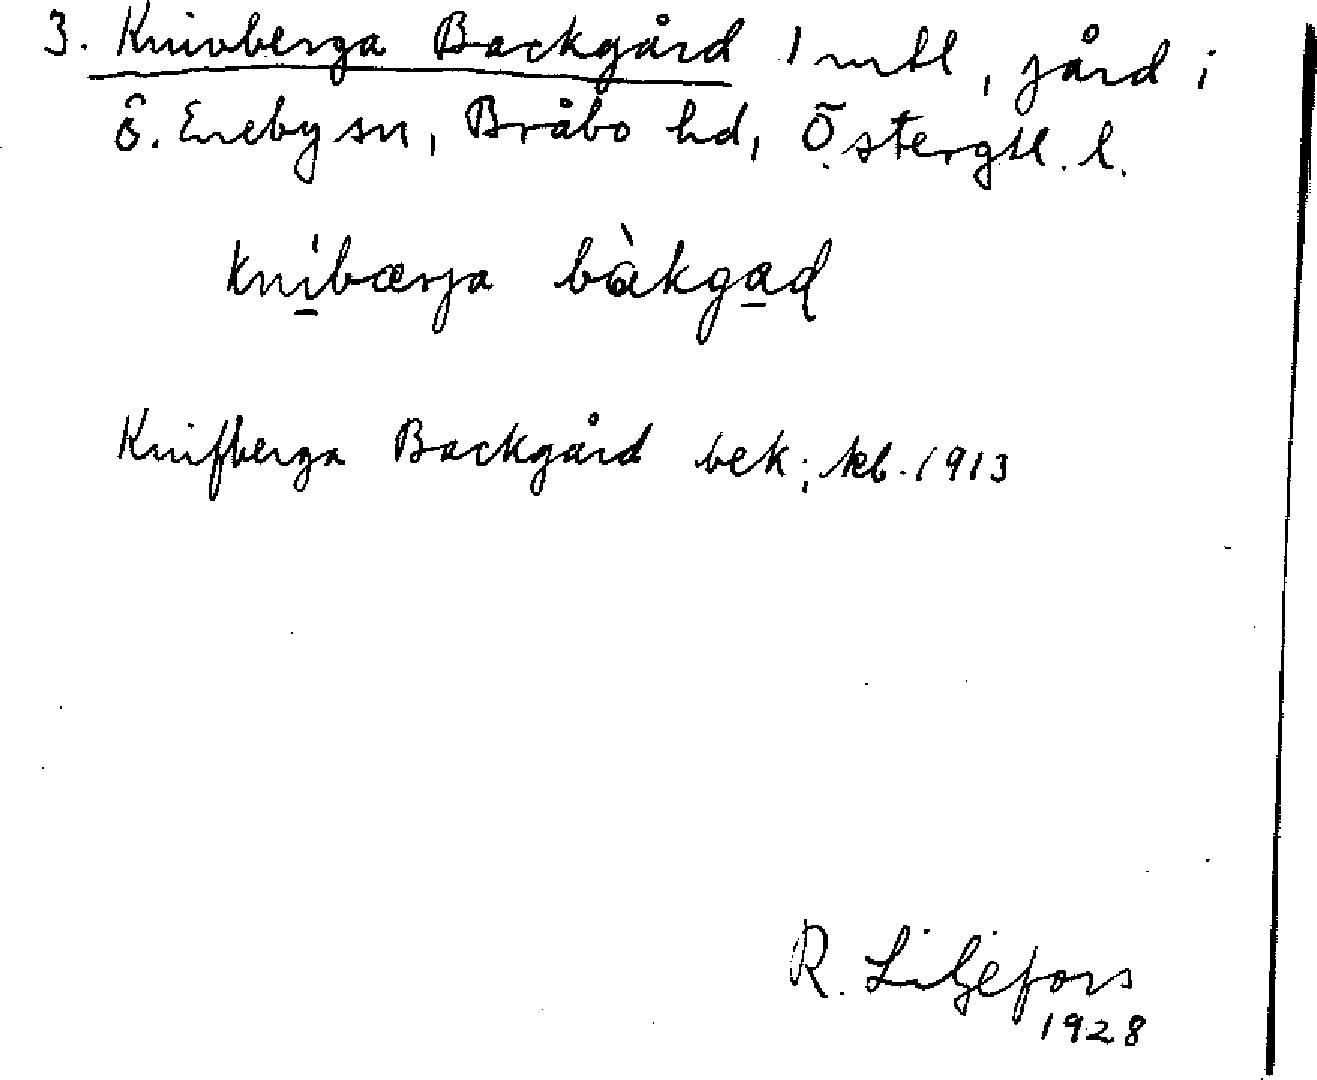 3. Knivberga Backgård 1 mtl, gård i
Ö. Eneby sn, Bråbo hd, Östergtl. l.
kní̱bærja bàkga̱ɖ
Knifberga Backgård bek; kb. 1913
R. Liljefors
1928